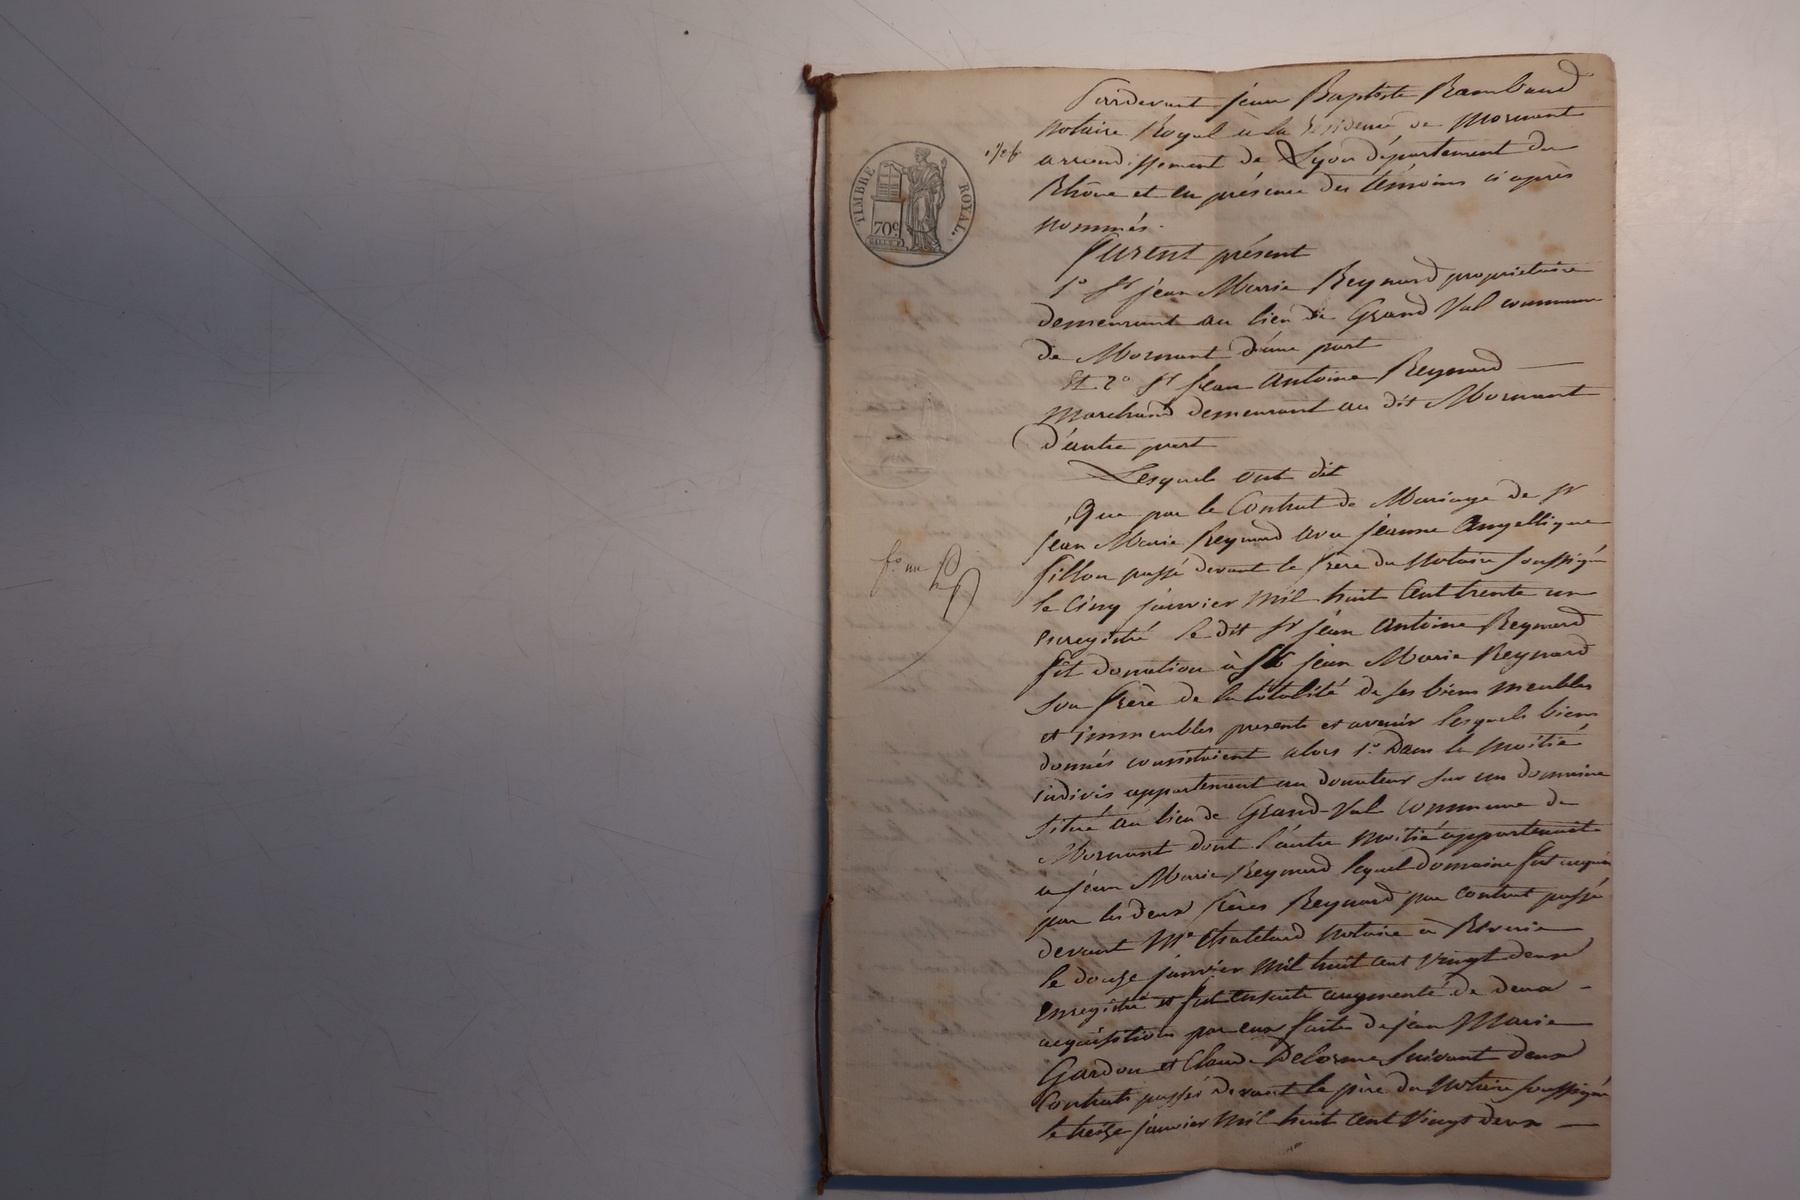 TIMBRE ROYAL.
70c
Pardevant Jean Baptiste Rambaud
Notaire Royal à la Résidence de Mornant
arrondissement de Lyon département du
Rhône et en présence des témoins ci après
nommés.
Furent présent
1o Sr Jean Marie Reynard propriétaire
demeurant au lieu de Grand Val commune
de Mornant d'une part
Et 2o Sr Jean Antoine Reynard
Marchand demeurant au dit Mornant
d'autre part
Lesquels ont dit
Que par le Contrat de Mariage de Sr
Jean Marie Reynard avec Jeanne Angellique
Fillon passé devant le frère du Notaire soussigné
le Cinq janvier Mil huit Cent trente un
Enregistré le dit Sr Jean Antoine Reynard
fit donation à Jean Marie Reynard
son frère de la totalité de ses biens meubles
et immeubles presents et avenir lesquels biens
donnés consistoient alors 1o Dans la Moitié
indivis appartenant au donateur sur un domaine
situé au lieu de Grand-Val commune de
Mornant dont l'autre Moitié appartenait
a Jean Marie Reynard lequel domaine fut acquis
par les deux frères Reynard par Contrat passé
devant Me Chatelard Notaire à Riverie
le douze janvier Mil huit cent vingt deux
Enregistré et fut ensuite augmenté de deux
acquisitions par eux faite de Jean Marie
Gardon et Claude Delorme suivant deux
Contrats passés devant le père du Notaire soussigné
le treize janvier Mil huit cent vingt deux